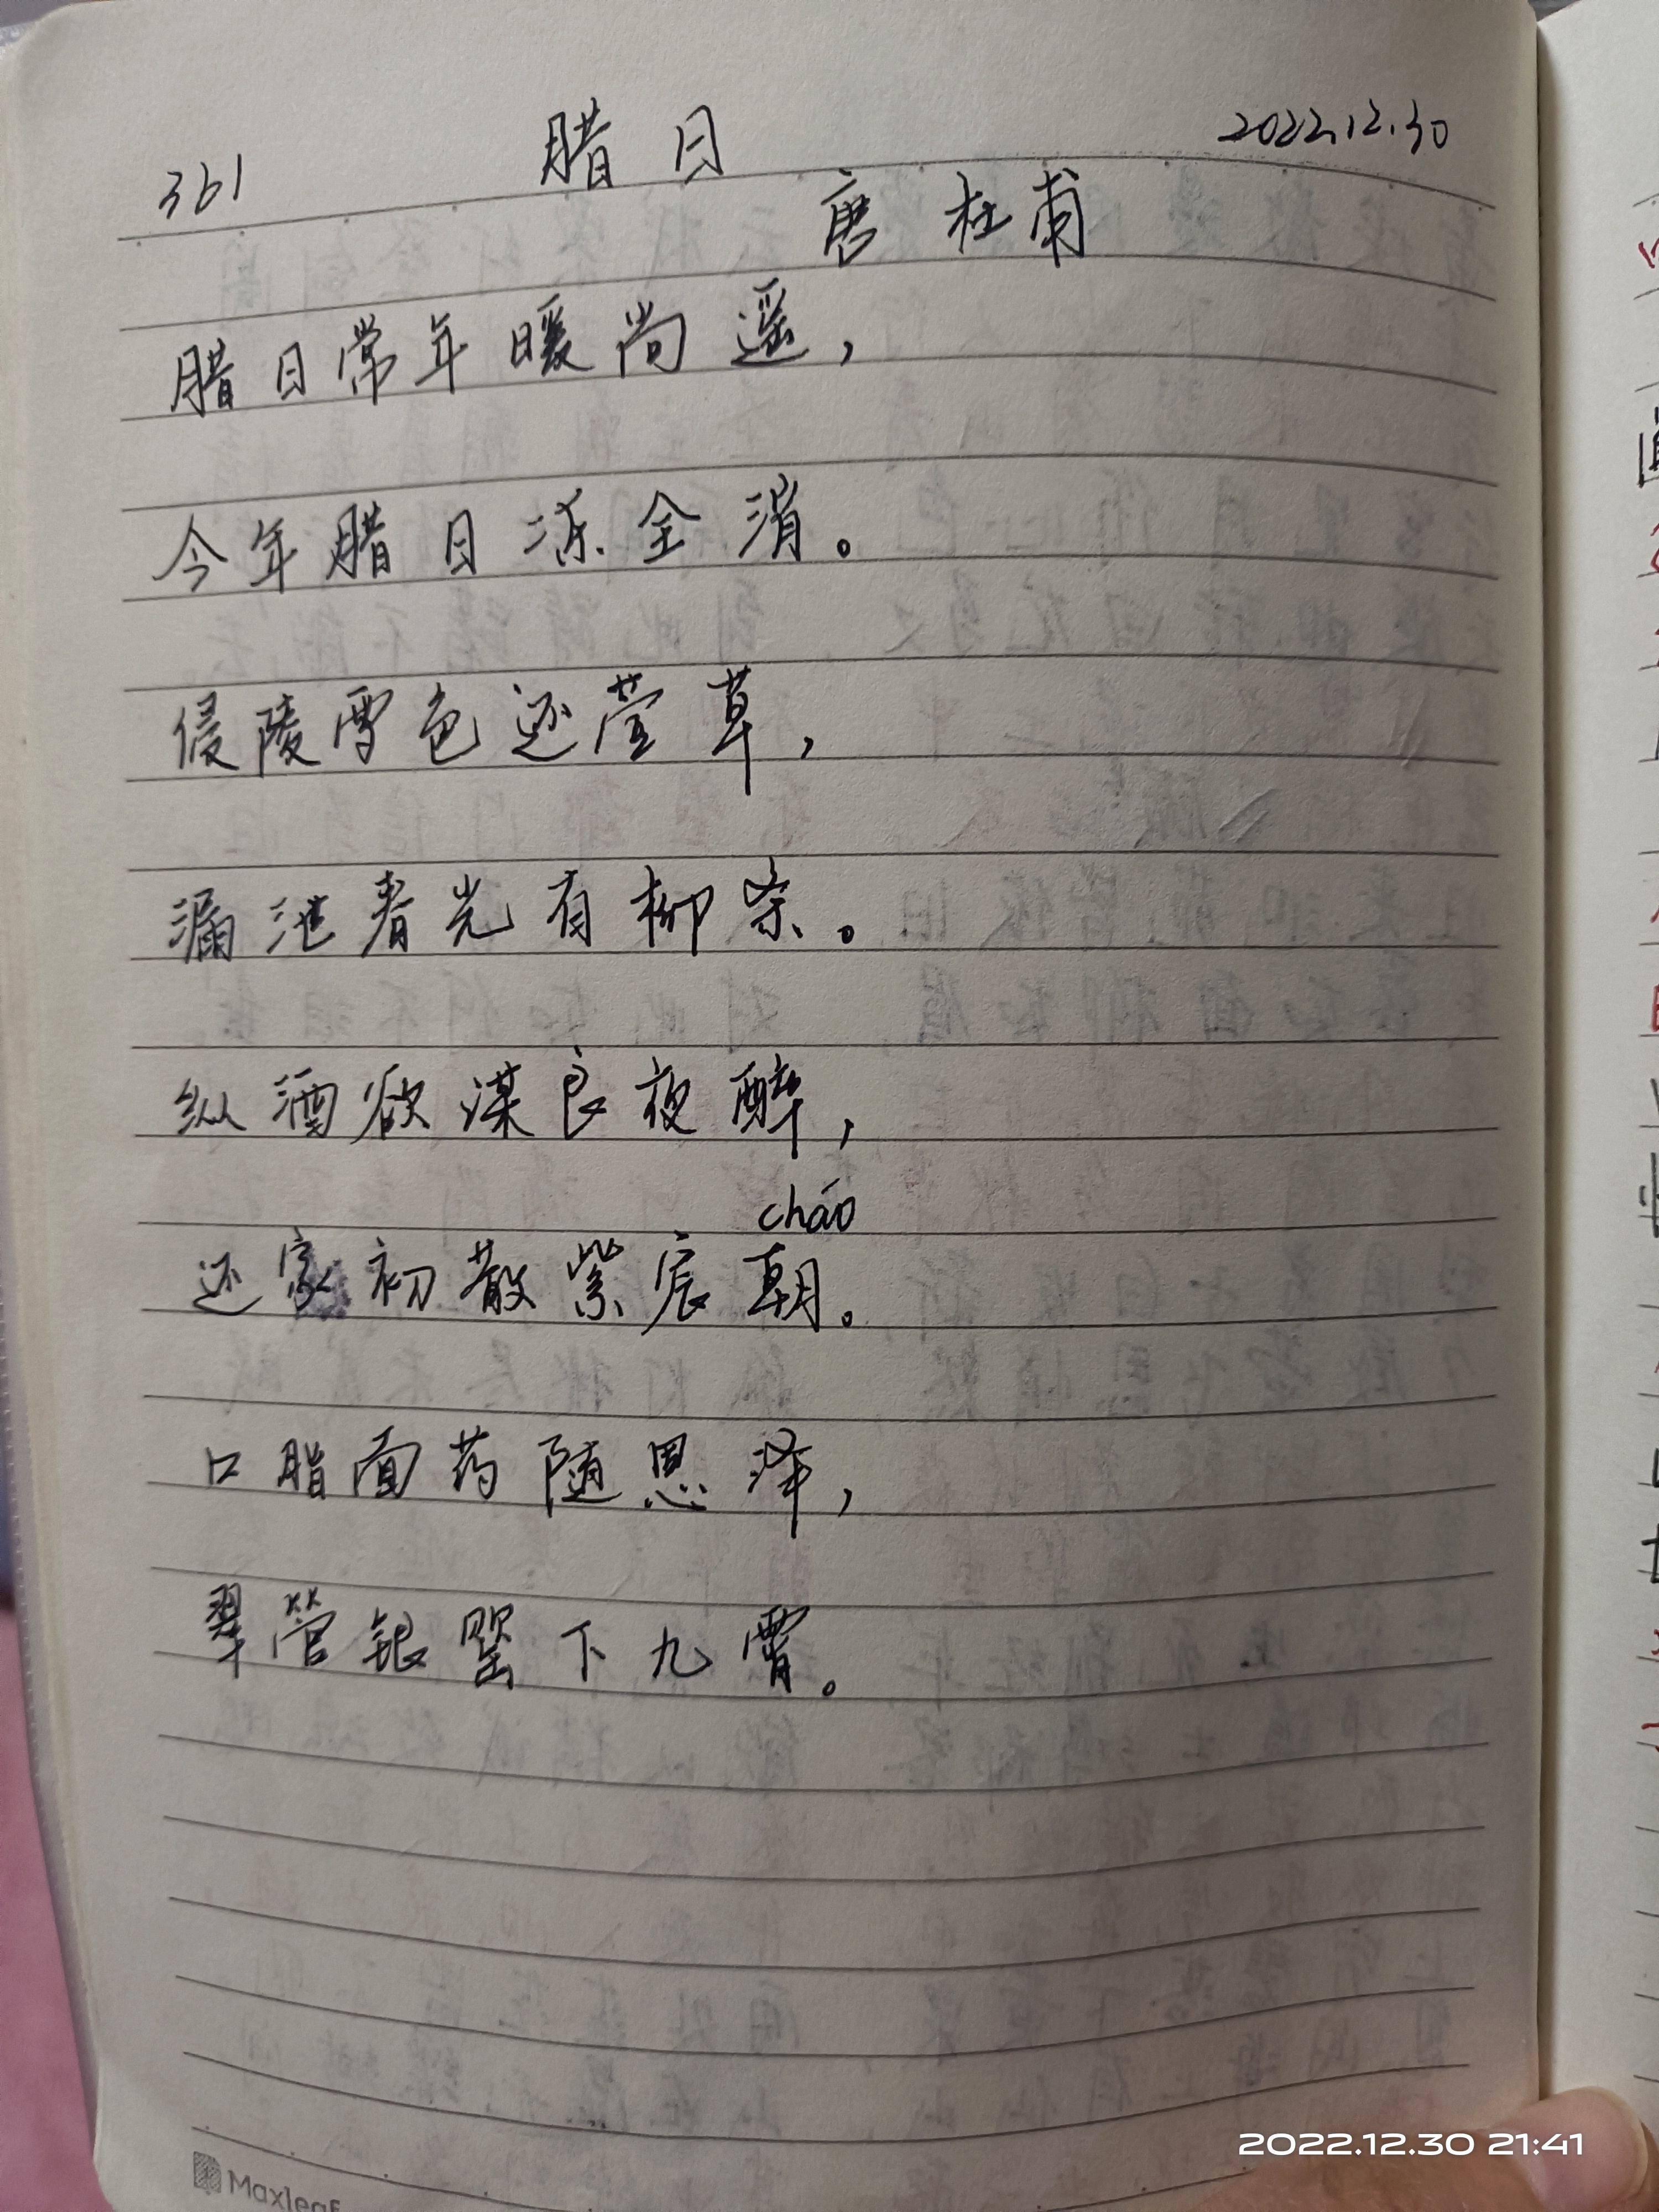 361 腊日 2022.12.30
唐 杜甫
腊日常年暖尚遥,
今年腊日冻全消。
侵陵雪色还萱草,
漏泄春光有柳条。
纵酒欲谋良夜醉,
cháo
还家初散紫宸朝。
口脂面药随恩泽,
翠管银罂下九霄。
Maxleaf
2022.12.30 21:41